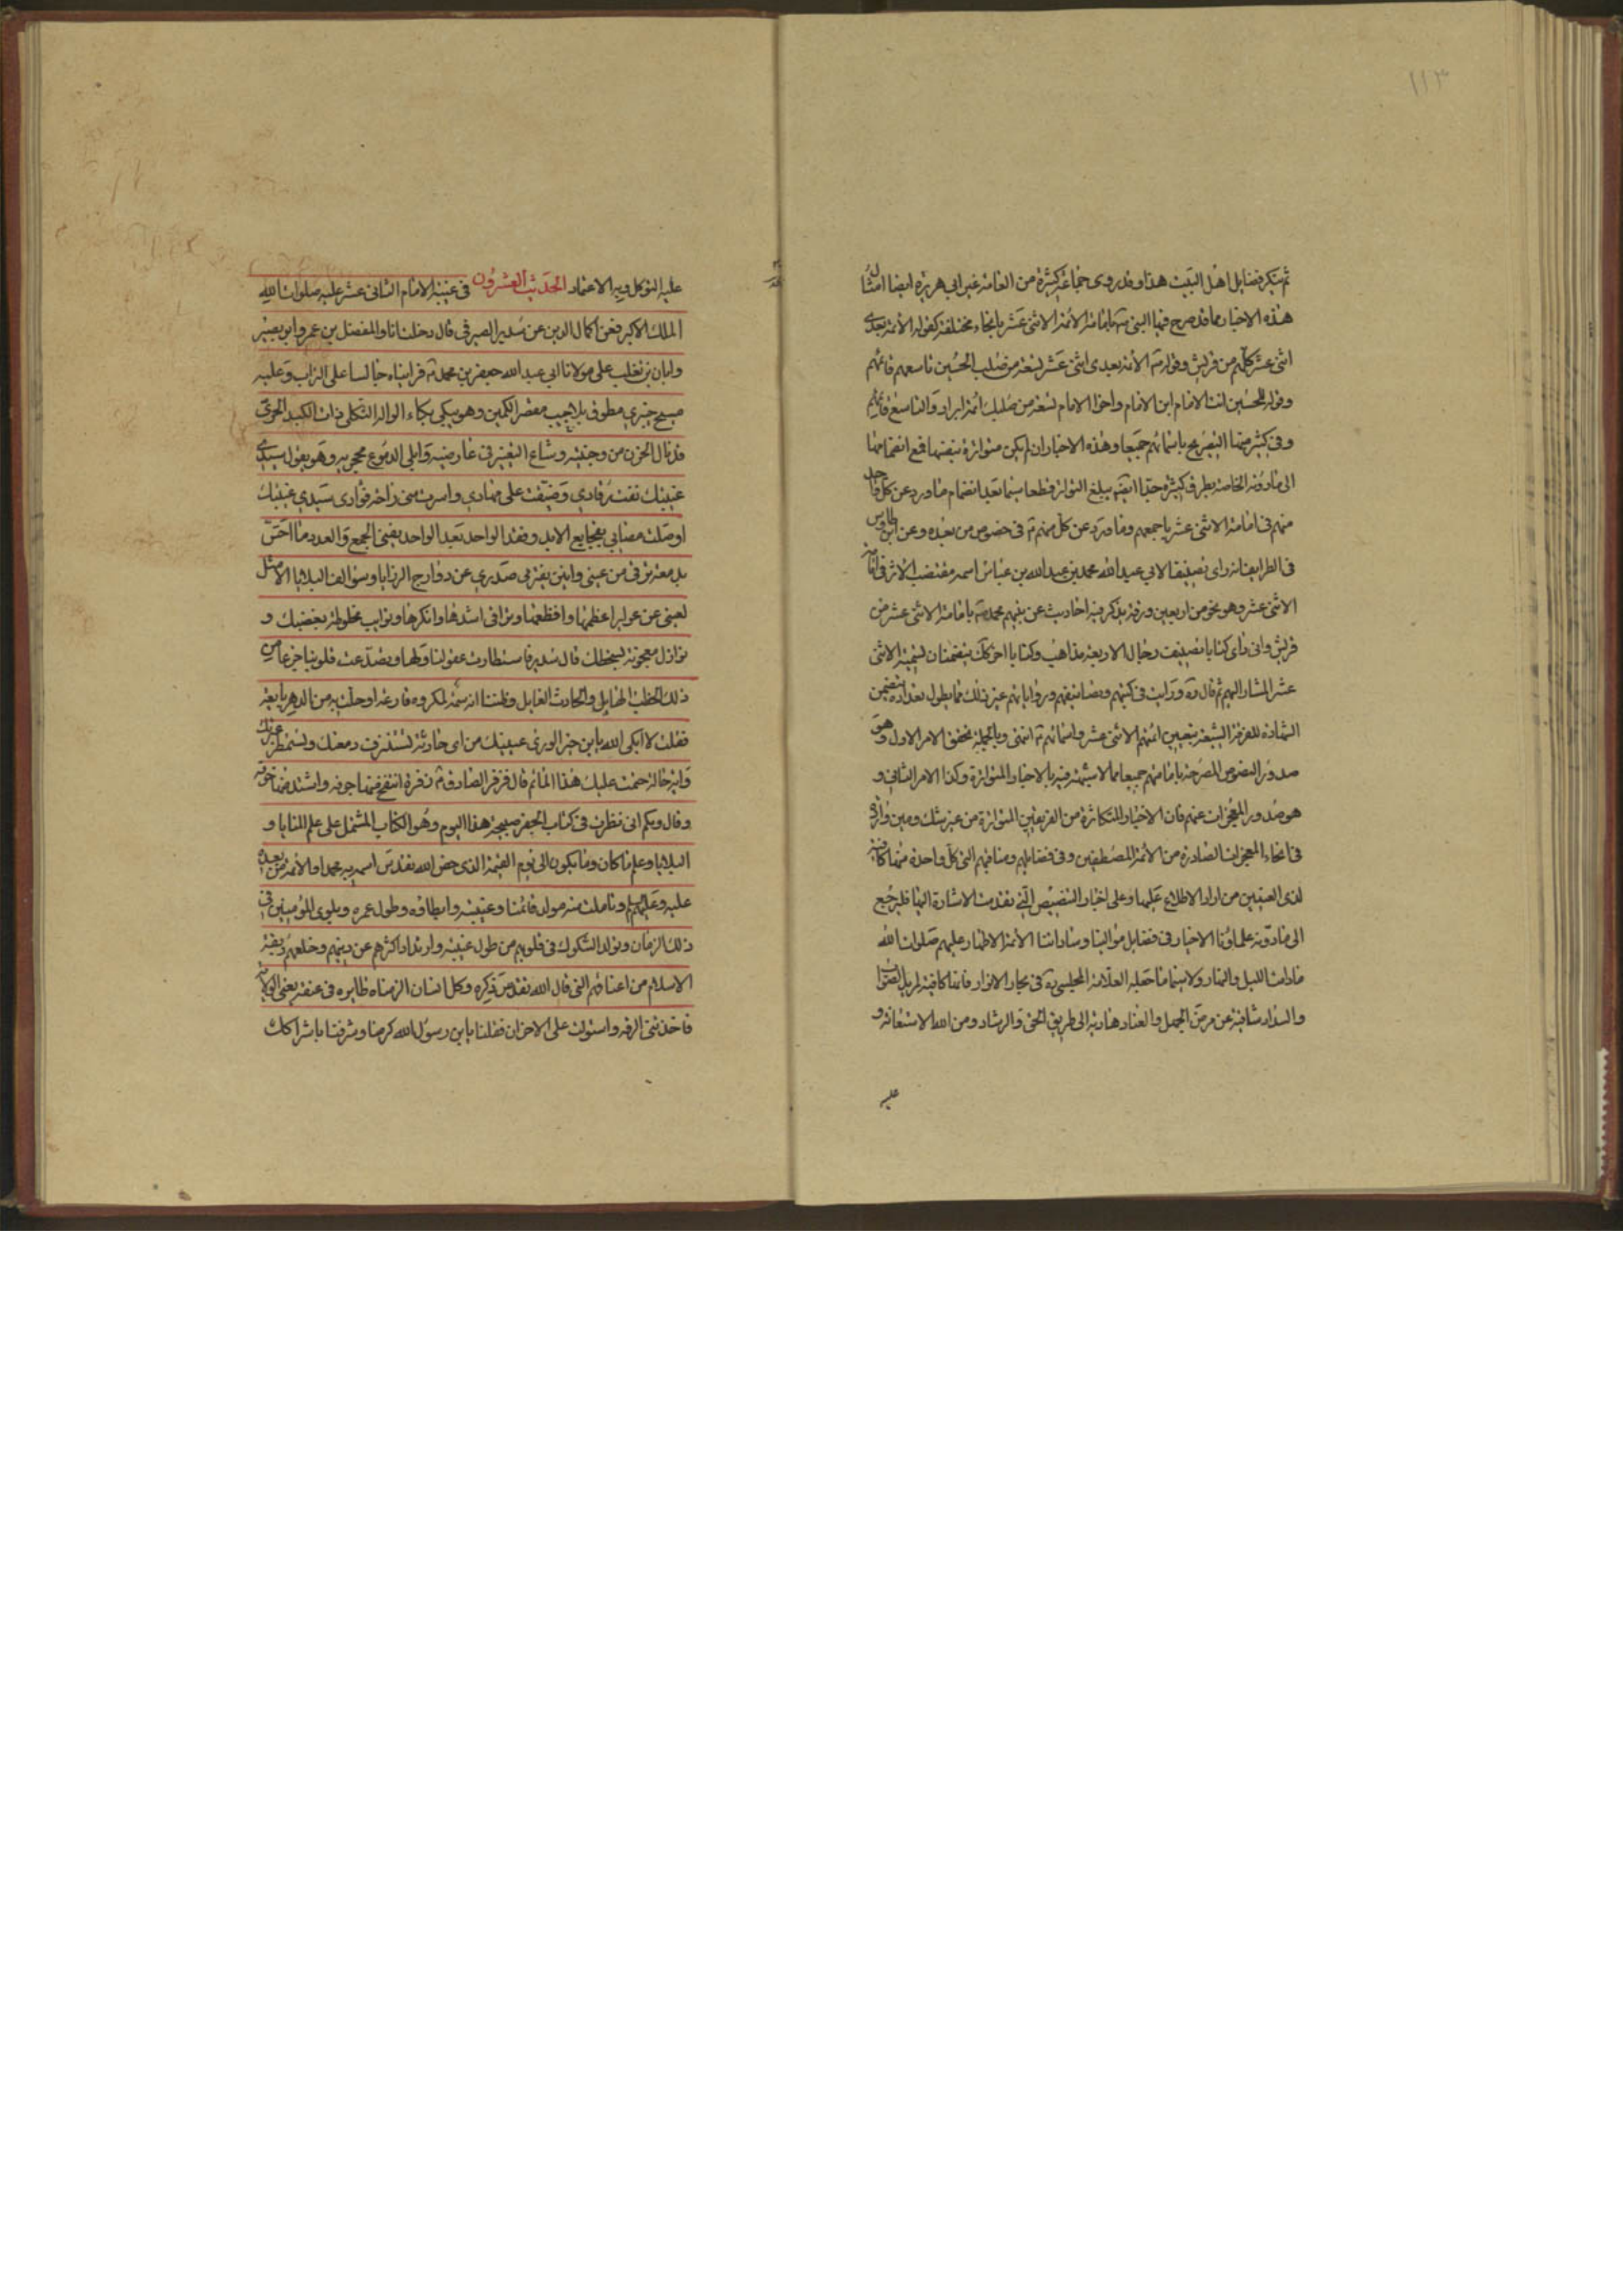 ١١٣
ثم ينكر فضايل اهل البيت هذا وقد روى جماعة كثيرة من العامة غير ابي هريرة ايضا امثال
هذه الاخبار مما قد صرح فيها النبي ص بامامة الأئمة الاثنى عشر بانحاء مختلفة كقوله الأئمة بعدى
اثنى عشر كلهم من قريش وقوله ص الأئمة بعدى اثنى عشر تسعة من صلب الحسين تاسعهم قائمهم
وقوله للحسين انت الامام ابن الامام واخو الامام تسعة من صلبك ائمة ابرار والتاسع قائمهم
وفى كثير منها التصريح باسمائهم جميعا وهذه الاخبار ان لم يكن متواترة بنفسها فمع انضمامها
الى ما دونه الخاصة بطرق كثيرة جدا انه يبلغ التواتر قطعا سيما بعد انضمام ما ورد عن كل واحد
منهم فى امامة الاثنى عشر باجمعهم وما ورد عن كل منهم ع فى خصوص من بعده وعن ابن طاوس
فى الطرايف انه راى تصنيفا لابي عبد الله محمد بن عبد الله بن عياش اسمه مقتضب الاثر فى امامة
الاثنى عشر وهو نحو من اربعين ورقة يذكر فيه احاديث عن نبيهم محمد ص بامامة الاثنى عشر من
قريش وانى راى كتابا تصنيف رجال الاربعة مذاهب وكتابا اخر كك يتضمنان تسمية الاثنى
عشر المشار اليهم ثم قال ره ورايت فى كتبهم وتصانيفهم ورواياتهم غير ذلك مما يطول تعداده يتضمن
الشهادة للفرقة الشيعة بتعيين ائمتهم الاثنى عشر واسمائهم ع انتهى وبالجملة تحقق الامر الاول وهو
صدور النصوص المصرحة بامامتهم جميعا مما لا شبهة فيه بالاخبار المتواترة وكذا الامر الثانى و
هو صدور المعجزات عنهم فان الاخبار المتكاثرة من الفريقين المتواترة من غير شك ومين واردة
فى انحاء المعجزات الصادرة من الأئمة المصطفين وفى فضايلهم ومناقبهم التى كل واحدة منها كافية
لذى العينين من اراد الاطلاع عليها وعلى اخبار التنصيص التى تقدمت الاشارة اليها فليرجع
الى ما دونه علماؤنا الاخيار فى فضايل موالينا وساداتنا الأئمة الاطهار عليهم صلوات الله
مادامت الليل والنهار ولا سيما ما جعله العلامة المجلسى ره فى بحار الانوار فانها كافية لمريد الصواب
والسداد شافية عن مرض الجهل والعناد هادية الى طريق الحق والرشاد ومن الله الاستعانة و
عليه
عليه التوكل وبه الاعتماد الحديث العشرون فى غيبة الامام الثانى عشر عليه صلوات الله
الملك الاكبر فعن اكمال الدين عن سدير الصيرفى قال دخلت انا والمفضل بن عمر وابو بصير
وابان بن تغلب على مولانا ابي عبد الله جعفر بن محمد ع فرايناه جالسا على التراب وعليه
مسح خيبرى مطوق بلا جيب مقصر الكمين وهو يبكى بكاء الواله الثكلى ذات الكبد الحرى
قد نال الحزن من وجنتيه وشاع التغير فى عارضيه وابلى الدموع محجريه وهو يقول سيدى
غيبتك نفت رقادى وضيقت على مهادى واسرت منى راحة فؤادى سيدى غيبتك
اوصلت مصابى بفجايع الابد وفقد الواحد بعد الواحد يفنى الجمع والعدد فما احس
بدمعة ترقى من عينى وانين يفتر من صدرى عن دوارج الرزايا وسوالف البلايا الا مثل
لعينى عن عواير اعظمها وافظعها وتراقى اشدها وانكرها ونوايب مخلوطة بغضبك و
نوازل معجونة بسخطك قال سدير فاستطارت عقولنا ولها وتصدعت قلوبنا جزعا من
ذلك الخطب الهايل والحادث الغايل وظننا انه سمة لمكروه قارعة او حلت به من الدهر بايقة
فقلت لا ابكى الله يابن خير الورى عينيك من اى حادثة تستنزف دمعتك وتستمطر عبرتك
واية حالة حتمت عليك هذا الماتم قال فزفر الصادق ع زفرة انتفخ منها جوفه واشتد منها خوفه
وقال ويكم انى نظرت فى كتاب الجفر صبيحة هذا اليوم وهو الكتاب المشتمل على علم المنايا و
البلايا وعلم ما كان وما يكون الى يوم القيمة الذى خص الله تقدس اسمه به محمدا والأئمة من بعده
عليه وعليهم السلم وتاملت منه مولد قائمنا وغيبته وابطاؤه وطول عمره وبلوى المؤمنين فى
ذلك الزمان وتولد الشكوك فى قلوبهم من طول غيبته وارتداد اكثرهم عن دينهم وخلعهم ربقة
الاسلام من اعناقهم التى قال الله تقدس ذكره وكل انسان الزمناه طايره فى عنقه يعنى الولاية
فاخذتنى الرقة واستولت على الاحزان فقلنا يابن رسول الله كرمنا وشرفنا باشراكك